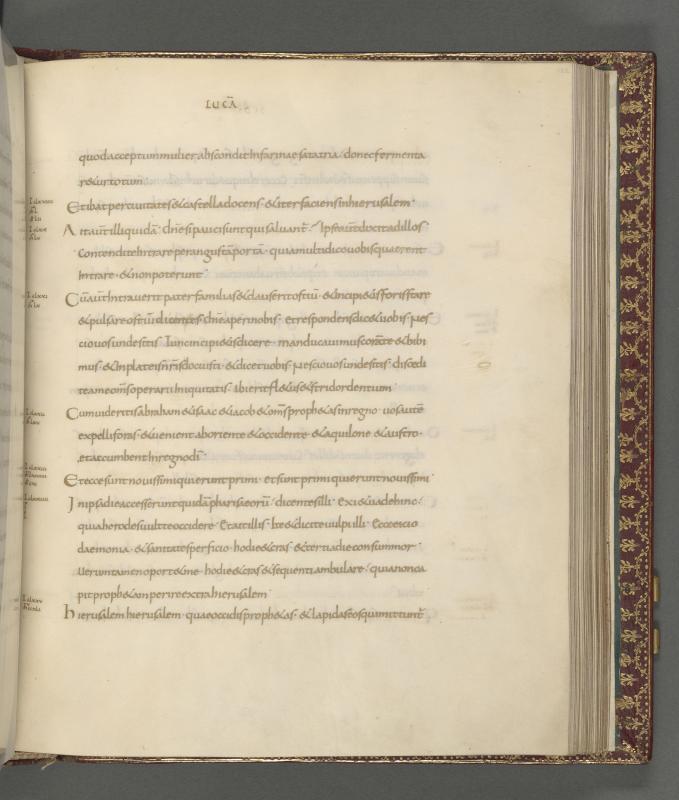 LUCĀ
quod acceptum mulier abscondit in farinae sata tria donec fermenta
retur totum
Et ibat per ciuitates & castella docens · & iter faciens in hierusalem ·
Ait aut̄ illi quidā · dn̄e si pauci sunt qui saluant̄ · Ipse aut̄ dixit ad illos
contendite intrare per angustā portā · quia multi dico uobis quaerent
intrare · & non poterunt ·
Cū aut̄ intrauerit pater familias & clauserit ostiū · & incipi&is foris stare
& pulsare ostiū dicentes · dn̄e aperi nobis · et respondens dic& uobis · nes
cio uos unde sitis · Tunc incipi&is dicere · manducauimus corā te & bibi
mus · & in plateis nr̄is docuisti · & dicet uobis · nescio uos unde sitis · discedi
te a me om̄s operarii iniquitatis · ibi erit fl&us & stridor dentium ·
Cum uideritis abraham & isaac & iacob & om̄s proph&as in regno · uos autē
expelli foras · & uenient ab oriente & occidente · & aquilone & austro ·
et accumbent in regno dī ·
Et ecce sunt nouissimi qui erunt primi · et sunt primi qui erunt nouissimi ·
In ipsa die accesserunt quidā pharisaeorū · dicentes illi · exi & uade hinc ·
quia herodes uult te occidere · Et ait illis · Ite dicite uulpi illi · Ecce eicio
daemonia · & sanitates perficio · hodie & cras · & tertia die consummor ·
Uerumtamen oport& me · hodie & cras & sequenti ambulare · quia non ca
pit proph&am perire extra hierusalem ·
hierusalem hierusalem · quae occidis proph&as · & lapidas eos qui mittunt̄